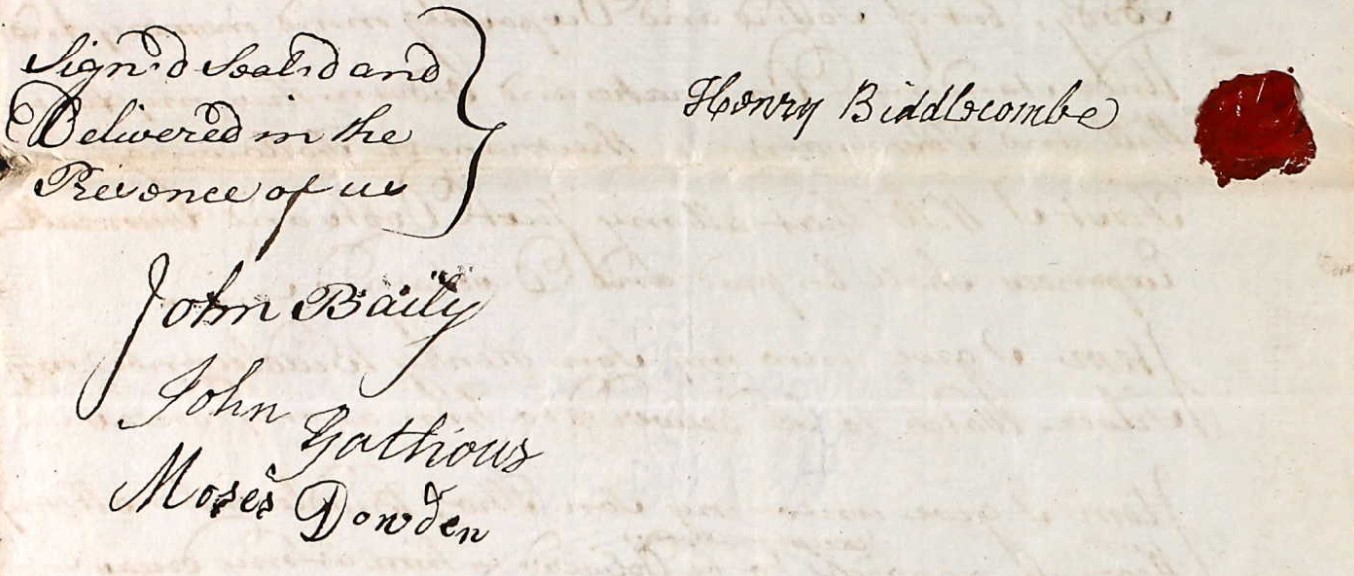 Sign'd Seal'd and
Delivered in the
Presence of us
Henry Biddlecombe
John Baily
John Gathous
Moses Dowden